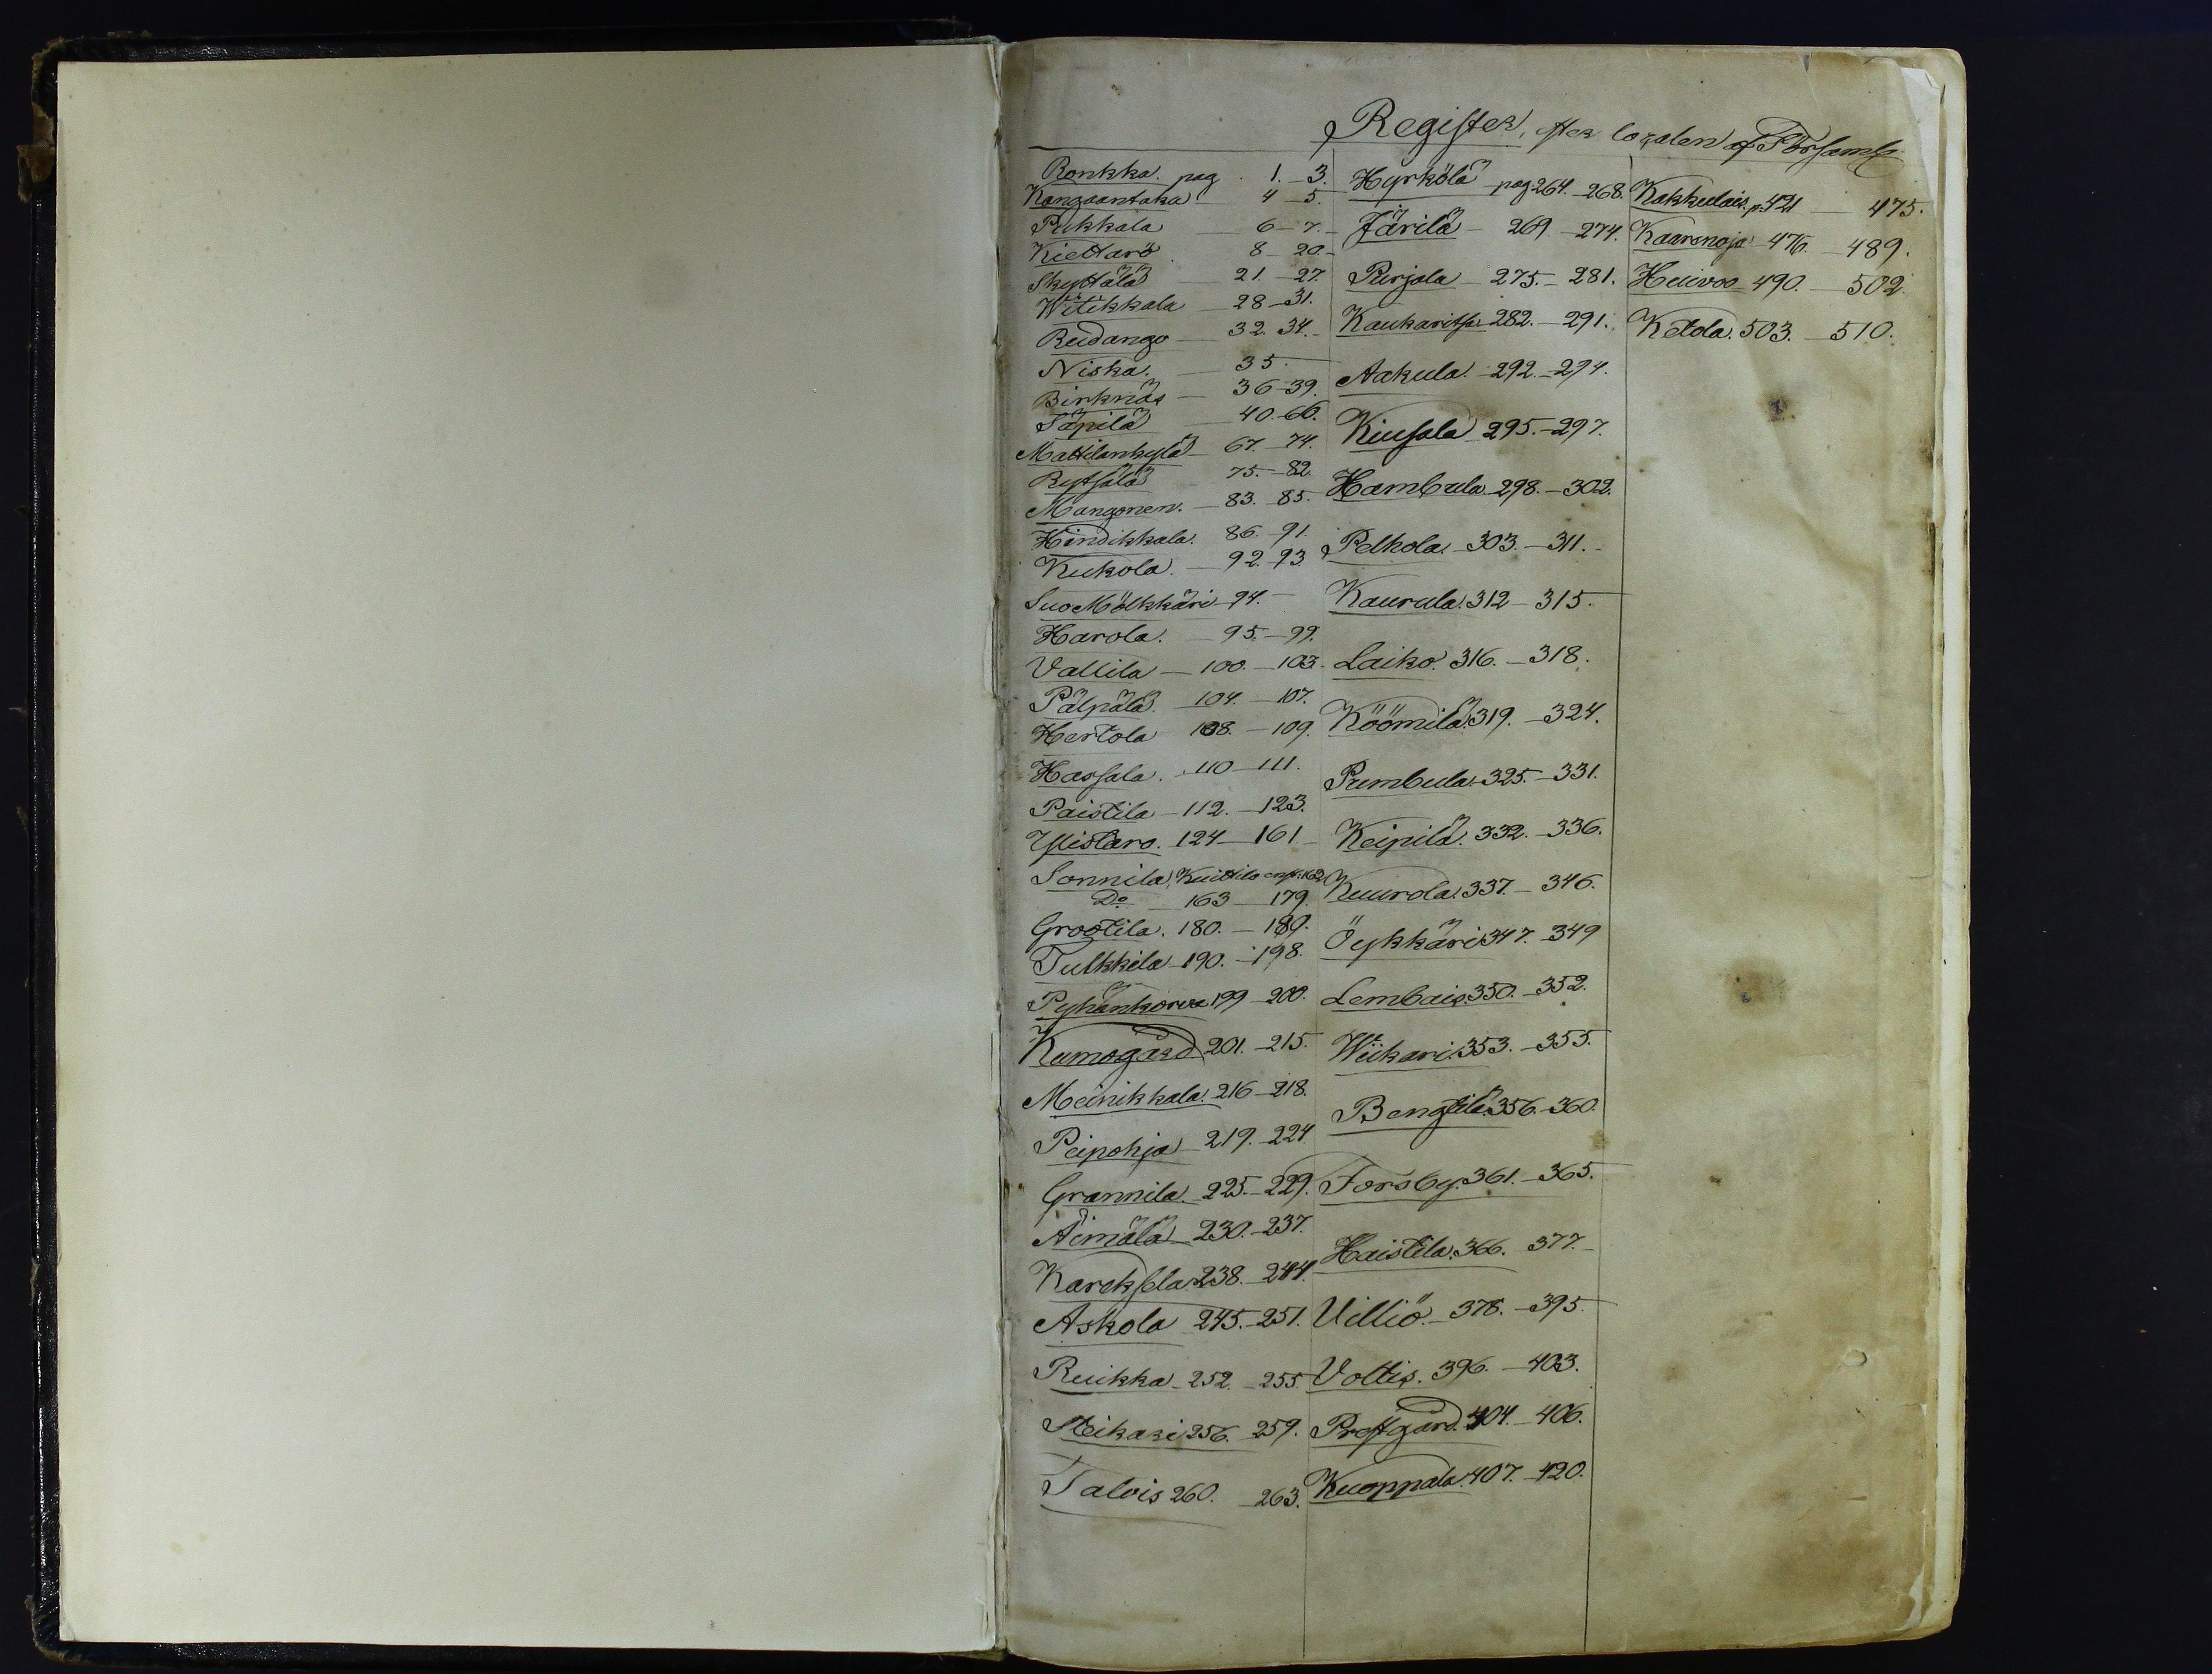 Register, efter localen af Församl.
Ronkka. pag. 1.-3.
Kangaantaka 4-5.
Pukkala 6-7.
Kiettarö 8-20.
Skyttälä 21-27.
Witikkala 28-31.
Rudango 32.34.
Niska. 35.
Birknäs 36-39.
Säpilä 40.-66.
Mattilankylä 67.-74.
Rytsälä 75.-82.
Mangonen. 83.-85.
Hindikkala. 86.-91.
Kukola. 92.93
Suo Mölkkäri 94.
Harola. 95.-99.
Vallila 100.-103.
Pälpälä. 104.-107.
Hertola 108.-109.
Hassala. 110-111.
Paistila 112.-123.
Ylistaro. 124-161
Sonnila, Kuittila 162
Do 163-179.
Grootila. 180.-189.
Tulkkila 190.-198.
Pyhänkorva 199-200.
Kumogård 201.-215.
Meinikkala. 216-218.
Peipohja 219.-224.
Grannila. 225.-229.
Äimälä 230.-237.
Kareksela 238.-244.
Askola 245.-251.
Ruikka 252.-255
256.-259.
Talois 260.-263.
Hyrkölä pag 264.-268.
Järilä 269-274.
Purjala 275.-281.
Kaukaritsa 282.-291.
Aakula. 292.-294.
Kiusala 295.-297.
Hambula 298.-302.
Pelhola. 303.-311.
Kaurula. 312-315.
Laiko. 316.-318.
Köömilä 319.-324.
Pumbula 325.-331.
Keipilä. 332.-336.
Kuurola. 337.-346.
Öykkäri 347.-349
Lembais. 350.-352.
Wiikari. 353.-355.
Bengtilä 356.-360.
Forsby. 361.-365.
Haistila. 366. 377.
Villiö. 378.-395.
Voltis. 396.-403.
Prestgård. 404.-406.
Kuoppala. 407.-420.
Kakkulais. p. 421-475.
Kaarenoja 476.-489.
Huivoo 490.-502.
Ketola. 503.-510.